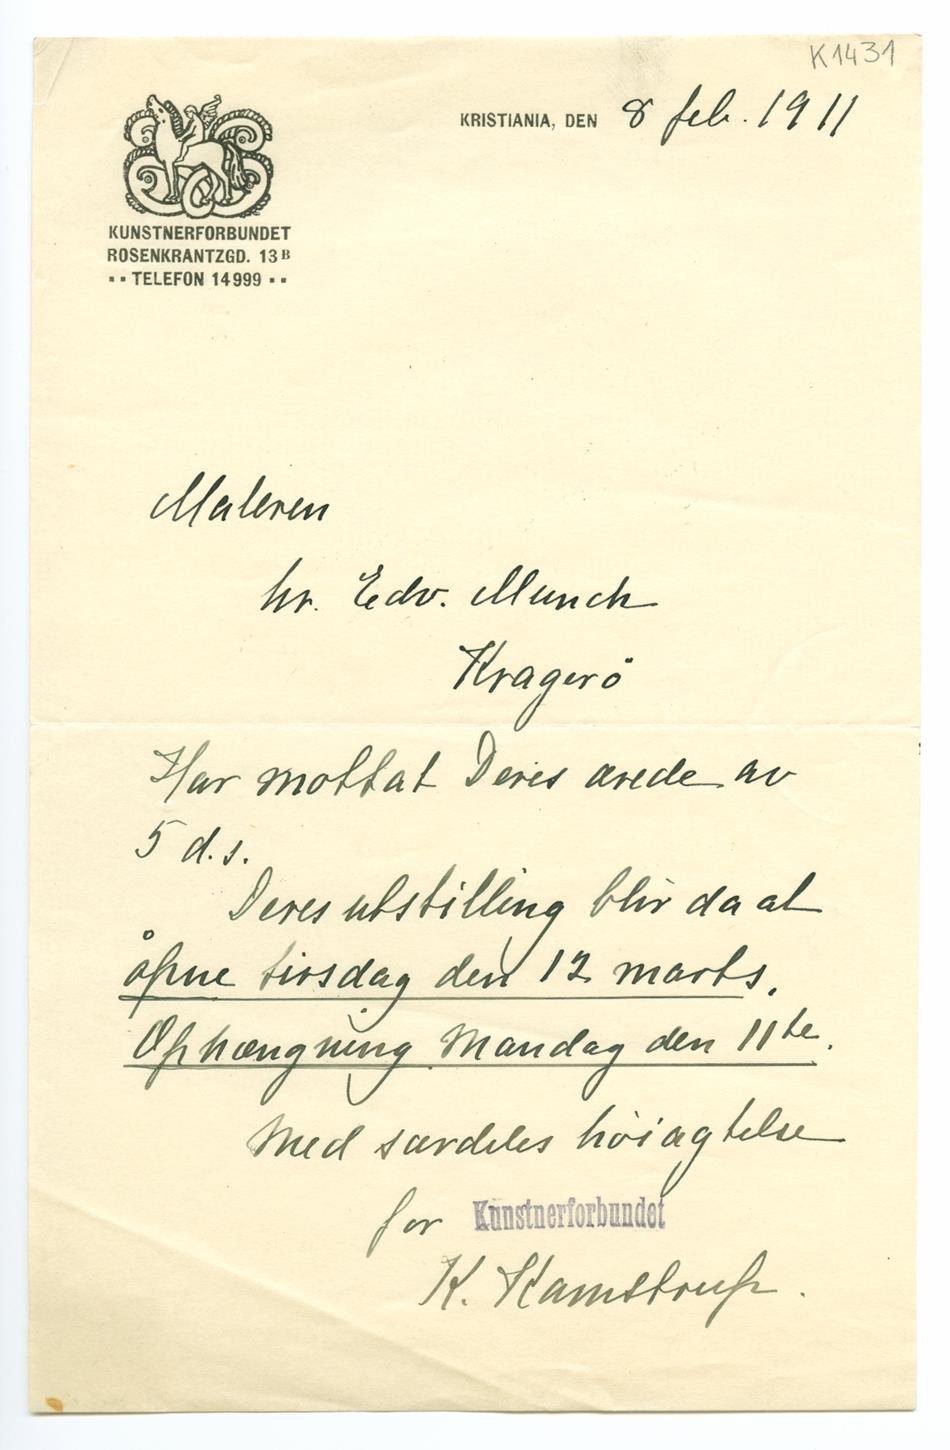 K1431
KRISTIANIA, DEN 8 feb. 1911
KUNSTNERFORBUNDET
ROSENKRANTZGD. 13B
TELEFON 14999
Maleren
hr. Edv. Munch
Kragerö
Har mottat Deres ærede av
5 d.s.
Deres utstilling blir da at
åpne tirsdag den 12 marts.
Ophængning Mandag den 11te.
Med særdeles höiagtelse
for Kunstnerforbundet
K. Kamstrup.